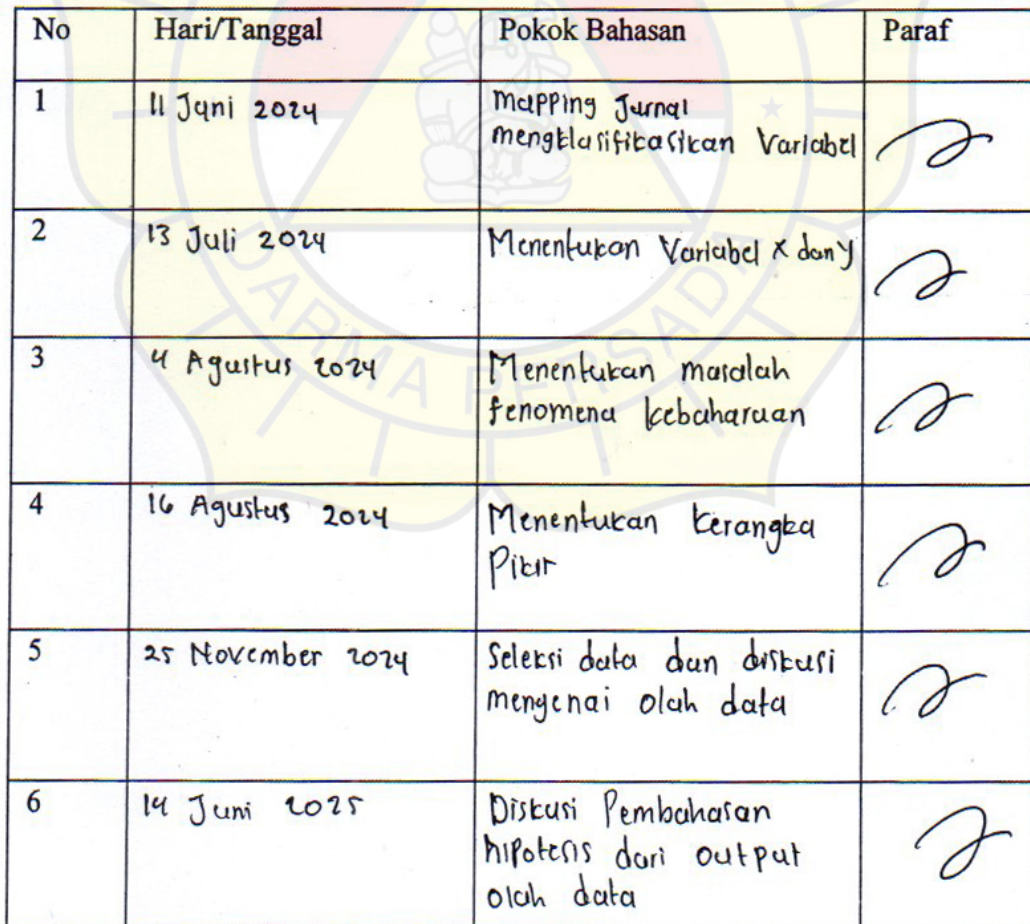 No Hari/Tanggal Pokok Bahasan Paraf
1 11 Juni 2024 Mapping Jurnal
mengklasifikasikan Variabel
2 13 Juli 2024 Menentukan Variabel X dan Y
3 4 Agustus 2024 Menentukan masalah
fenomena kebaharuan
4 16 Agustus 2024 Menentukan kerangka
Pikir
5 25 November 2024 Seleksi data dan diskusi
mengenai olah data
6 14 Juni 2025 Diskusi Pembahasan
hipotesis dari output
olah data
DARMA PERSADA